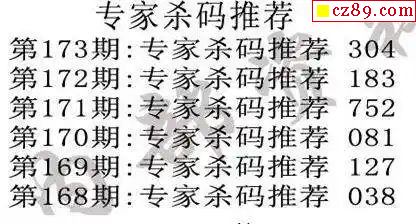 专家杀码推荐
cz89.com
第173期:专家杀码推荐 304
第172期:专家杀码推荐 183
第171期:专家杀码推荐 752
第170期:专家杀码推荐 081
第169期:专家杀码推荐 127
第168期:专家杀码推荐 038